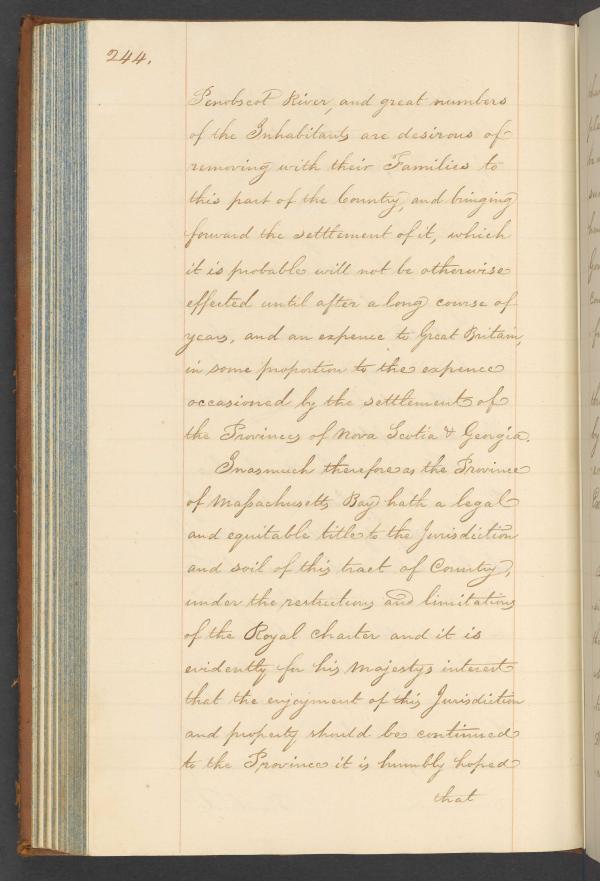 244.
Penobscot River, and great numbers
of the Inhabitants are desirous of
removing with their Families to
this part of the Country, and bringing
forward the settlement of it, which
it is probable will not be otherwise
effected until after a long course of
years, and an expence to Great Britain,
in some proportion to the expence
occasioned by the settlement of
the Provinces of Nova Scotia & Georgia.
Inasmuch therefore as the Province
of Maſsachusetts Bay hath a legal
and equitable title to the Jurisdiction
and soil of this tract of Country,
under the restrictions and limitations
of the Royal charter and it is
evidently for his Majestys interest
that the enjoyment of this Jurisdiction
and property should be continued
to the Province it is humbly hoped
that